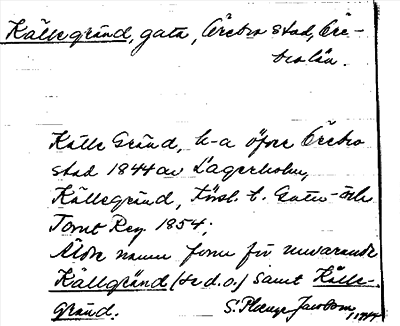 Källegränd, gata, Örebro stad, Öre-
bro län.
Källe Gränd, k-a öfver Örebro
stad 1844 av Lagerholm,
Källegränd, Försl. t. Gatu- och
Tomt Reg. 1854;
Äldre namn form för nuvarande
Källgränd (se d.o.) samt Källe-
Gränd.
S. Plenge Jacobson,